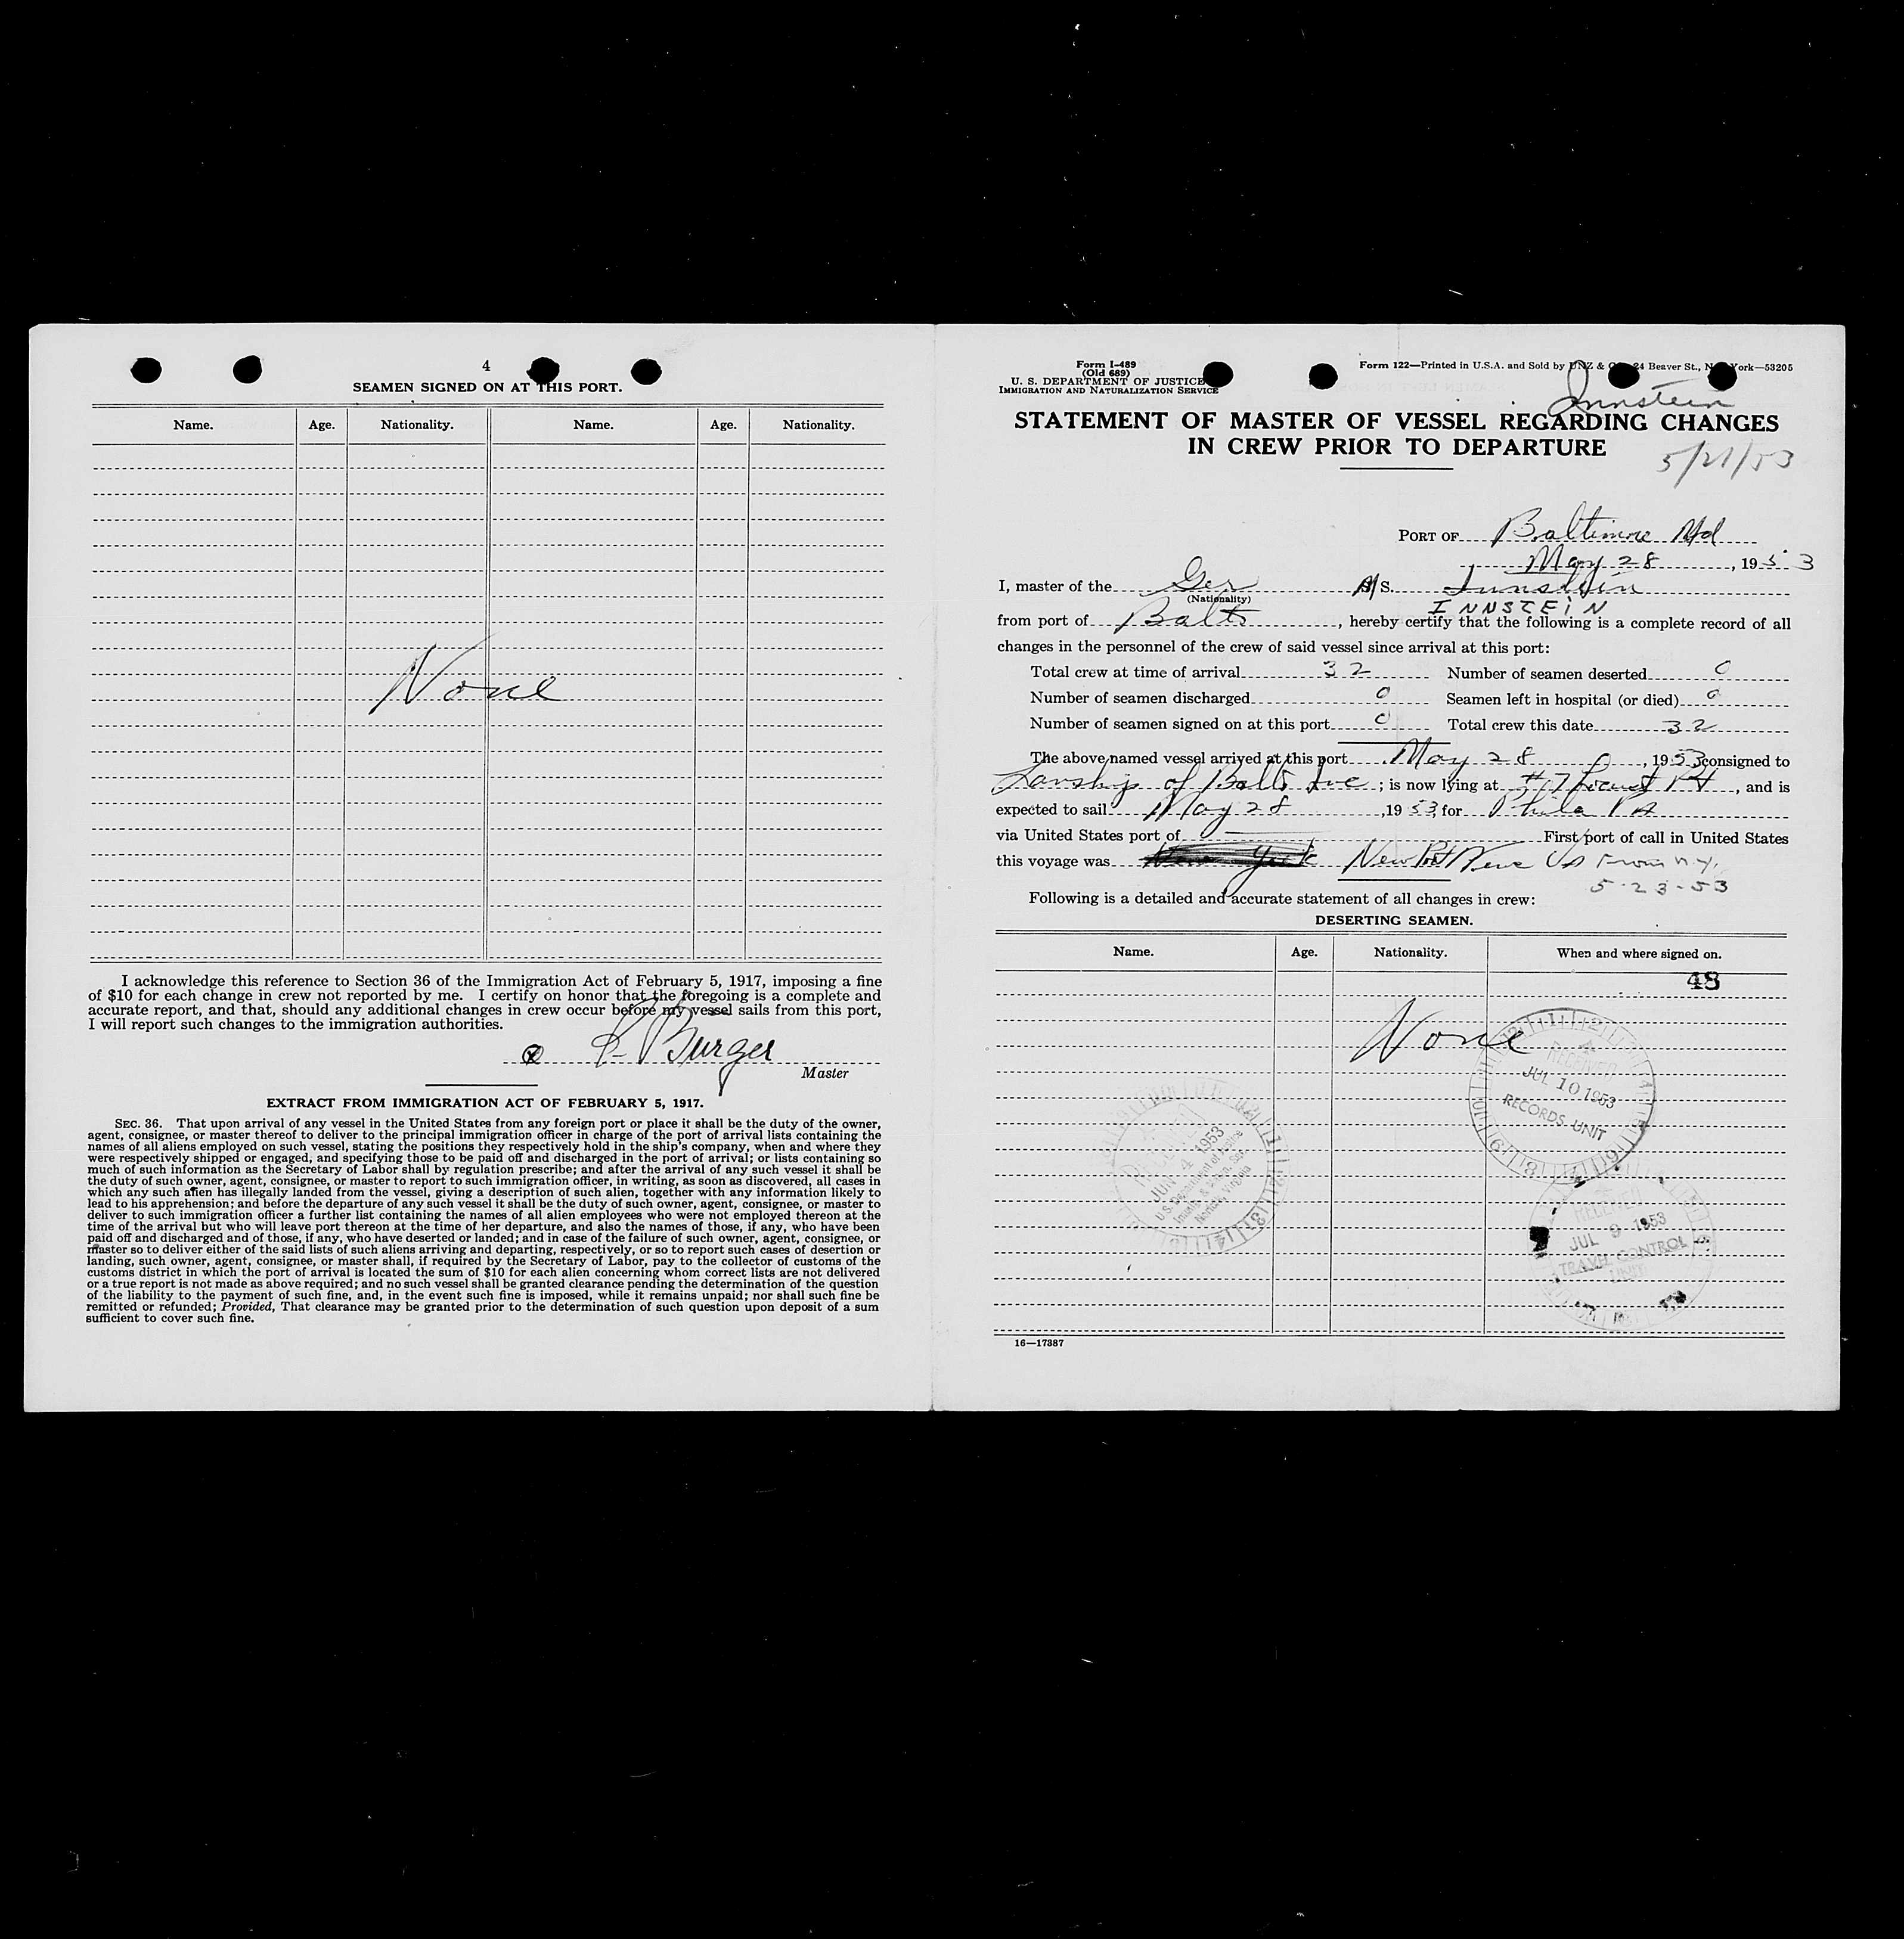 4
SEAMEN SIGNED ON AT THIS PORT.
Name. Age. Nationality. Name. Age. Nationality.
None
I acknowledge this reference to Section 36 of the Immigration Act of February 5, 1917, imposing a fine
of $10 for each change in crew not reported by me. I certify on honor that the foregoing is a complete and
accurate report, and that, should any additional changes in crew occur before my vessel sails from this port,
I will report such changes to the immigration authorities.
Burger
Master
EXTRACT FROM IMMIGRATION ACT OF FEBRUARY 5, 1917.
SEC. 36. That upon arrival of any vessel in the United States from any foreign port or place it shall be the duty of the owner,
agent, consignee, or master thereof to deliver to the principal immigration officer in charge of the port of arrival lists containing the
names of all aliens employed on such vessel, stating the positions they respectively hold in the ship's company, when and where they
were respectively shipped or engaged, and specifying those to be paid off and discharged in the port of arrival; or lists containing so
much of such information as the Secretary of Labor shall by regulation prescribe; and after the arrival of any such vessel it shall be
the duty of such owner, agent, consignee, or master to report to such immigration officer, in writing, as soon as discovered, all cases in
which any such alien has illegally landed from the vessel, giving a description of such alien, together with any information likely to
lead to his apprehension; and before the departure of any such vessel it shall be the duty of such owner, agent, consignee, or master to
deliver to such immigration officer a further list containing the names of all alien employees who were not employed thereon at the
time of the arrival but who will leave port thereon at the time of her departure, and also the names of those, if any, who have been
paid off and discharged and of those, if any, who have deserted or landed; and in case of the failure of such owner, agent, consignee, or
master so to deliver either of the said lists of such aliens arriving and departing, respectively, or so to report such cases of desertion or
landing, such owner, agent, consignee, or master shall, if required by the Secretary of Labor, pay to the collector of customs of the
customs district in which the port of arrival is located the sum of $10 for each alien concerning whom correct lists are not delivered
or a true report is not made as above required; and no such vessel shall be granted clearance pending the determination of the question
of the liability to the payment of such fine, and, in the event such fine is imposed, while it remains unpaid; nor shall such fine be
remitted or refunded; Provided, That clearance may be granted prior to the determination of such question upon deposit of a sum
sufficient to cover such fine.
Form I-489
(Old 689)
U. S. DEPARTMENT OF JUSTICE
IMMIGRATION AND NATURALIZATION SERVICE
Form 122—Printed in U.S.A. and Sold by UNZ & Co., 24 Beaver St., New York—53205
Innstein
STATEMENT OF MASTER OF VESSEL REGARDING CHANGES
IN CREW PRIOR TO DEPARTURE
5/21/53
PORT OF Baltimore Md
May 28, 1953
I, master of the Ger M/S. Innstein
(Nationality)
INNSTEIN
from port of Balto, hereby certify that the following is a complete record of all
changes in the personnel of the crew of said vessel since arrival at this port:
Total crew at time of arrival 32 Number of seamen deserted 0
Number of seamen discharged 0 Seamen left in hospital (or died) 0
Number of seamen signed on at this port 0 Total crew this date 32
The above named vessel arrived at this port May 28, 1953 consigned to
of Balto Inc; is now lying at #7 Locust Pt, and is
expected to sail May 28, 1953, for Phila Pa
via United States port of First port of call in United States
this voyage was New York New Port News Va From N.Y.
5-23-53
Following is a detailed and accurate statement of all changes in crew:
DESERTING SEAMEN.
Name. Age. Nationality. When and where signed on.
48
None
RECEIVED
JUL 10 1953
RECORDS UNIT
JUN 4 1953
U.S. Department of Justice
Norfolk, Virginia
RECEIVED
JUL 9 1953
TRAVEL CONTROL
UNIT
16—17387